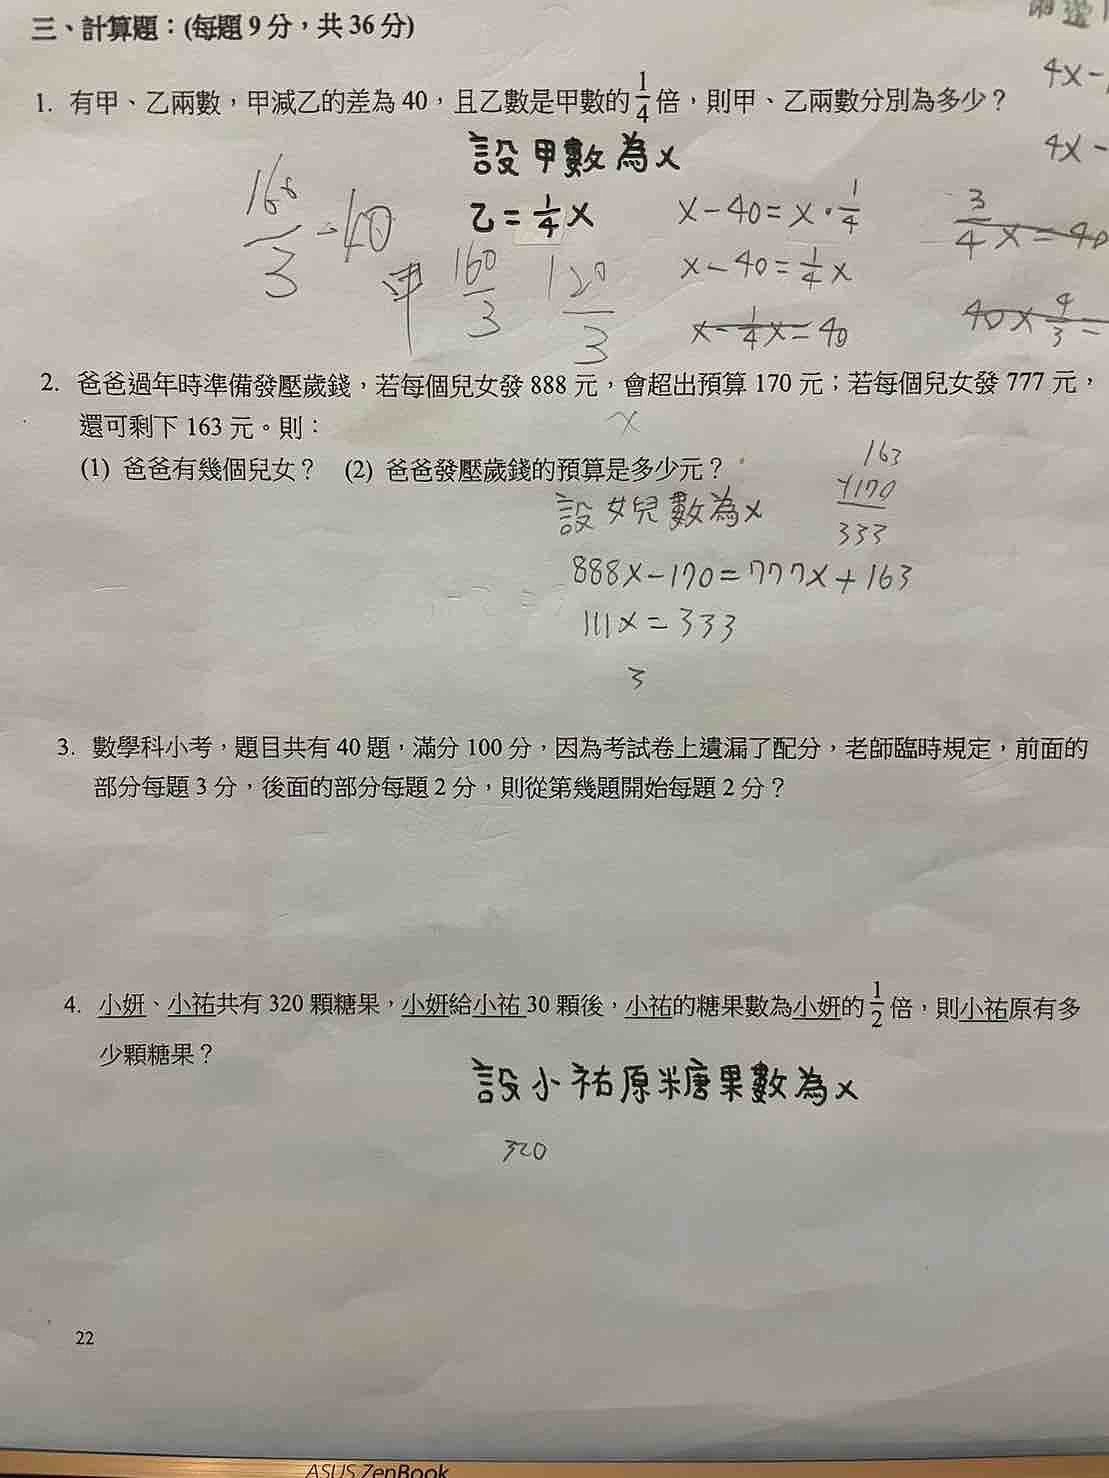 三、計算題：(每題 9 分，共 36 分)
兩邊
4x-
4x-
1. 有甲、乙兩數，甲減乙的差為 40，且乙數是甲數的 1/4 倍，則甲、乙兩數分別為多少？
設甲數為x
乙=1/4x
160/3 - 40
甲 160/3 120/3
x-40=x·1/4
x-40=1/4x
x-1/4x=40
3/4x=40
40×4/3=
2. 爸爸過年時準備發壓歲錢，若每個兒女發 888 元，會超出預算 170 元；若每個兒女發 777 元，
還可剩下 163 元。則：
x
(1) 爸爸有幾個兒女？ (2) 爸爸發壓歲錢的預算是多少元？
163
+170
333
設女兒數為x
888x-170=777x+163
111x=333
3
3. 數學科小考，題目共有 40 題，滿分 100 分，因為考試卷上遺漏了配分，老師臨時規定，前面的
部分每題 3 分，後面的部分每題 2 分，則從第幾題開始每題 2 分？
4. 小妍、小祐共有 320 顆糖果，小妍給小祐 30 顆後，小祐的糖果數為小妍的 1/2 倍，則小祐原有多
少顆糖果？
設小祐原糖果數為x
320
22
ASUS ZenBook